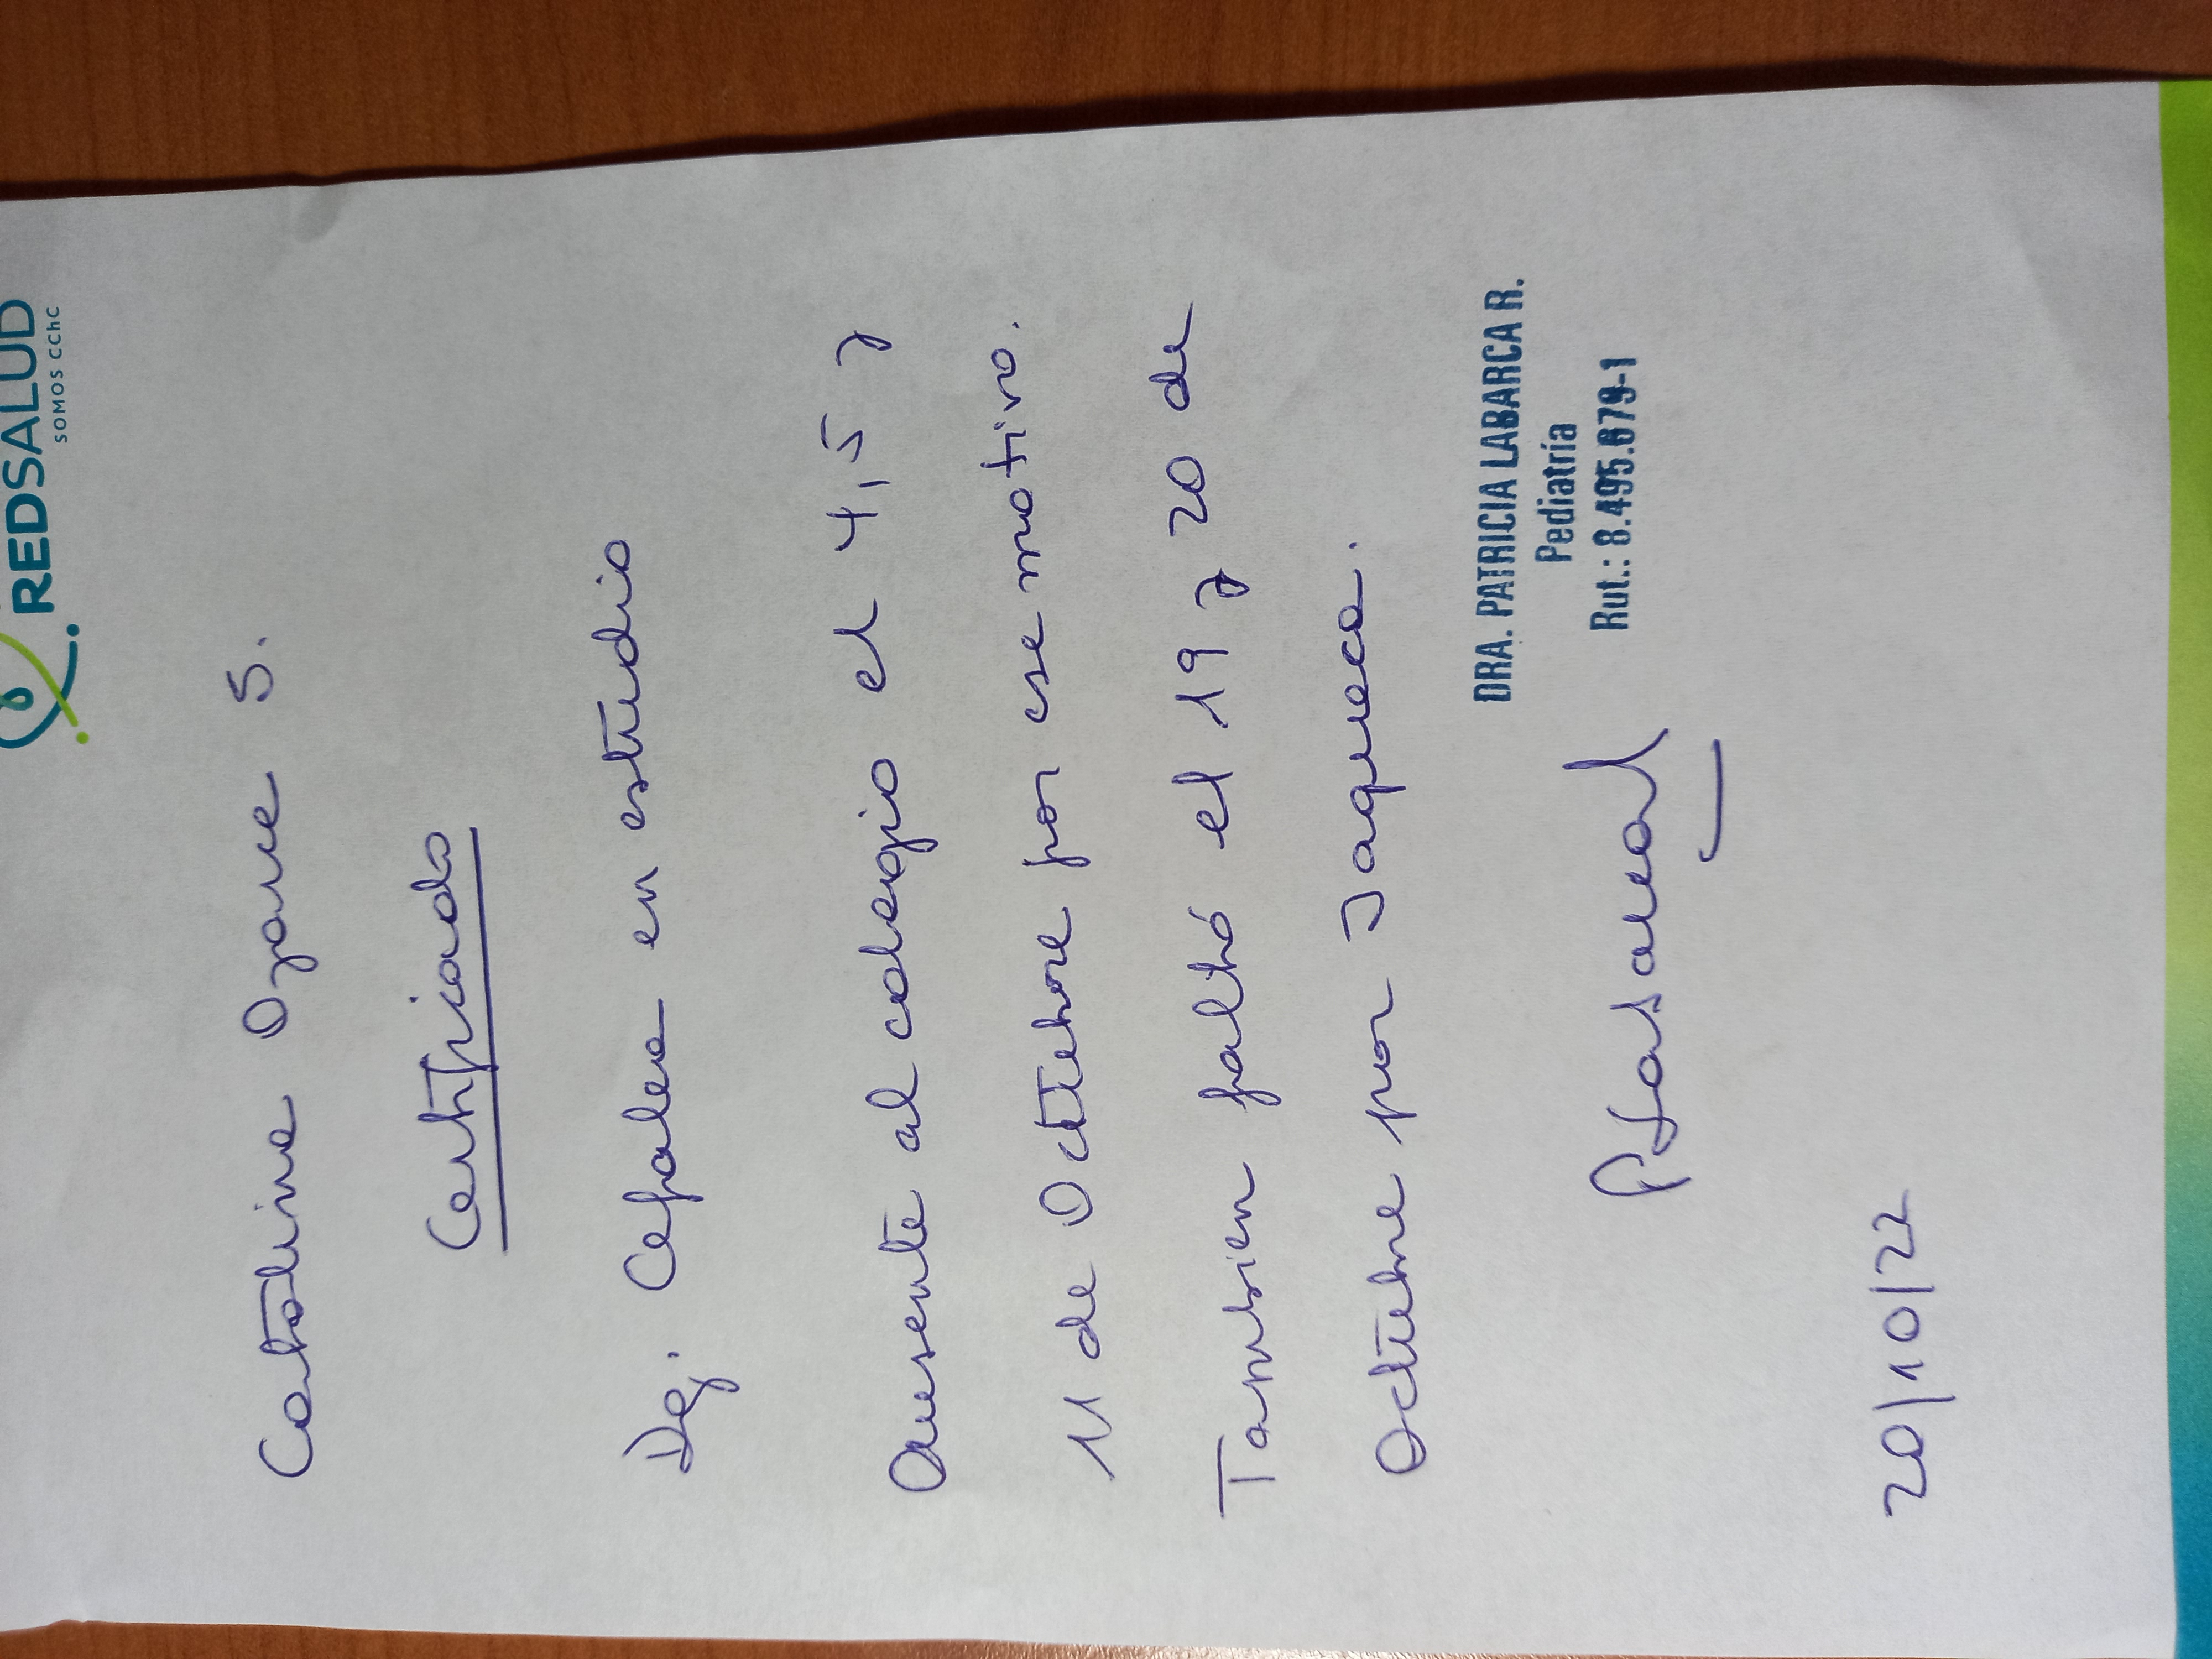 REDSALUD
SOMOS CChC
Catalina Oyarce S.
Certificado
Dg. Cefalea en estudio
Ausente al colegio el 4, 5 y
11 de Octubre por ese motivo.
Tambien faltó el 19 y 20 de
Octubre por Jaqueca.
DRA. PATRICIA LABARCA R.
Pediatría
Rut.: 8.495.679-1
20/10/22